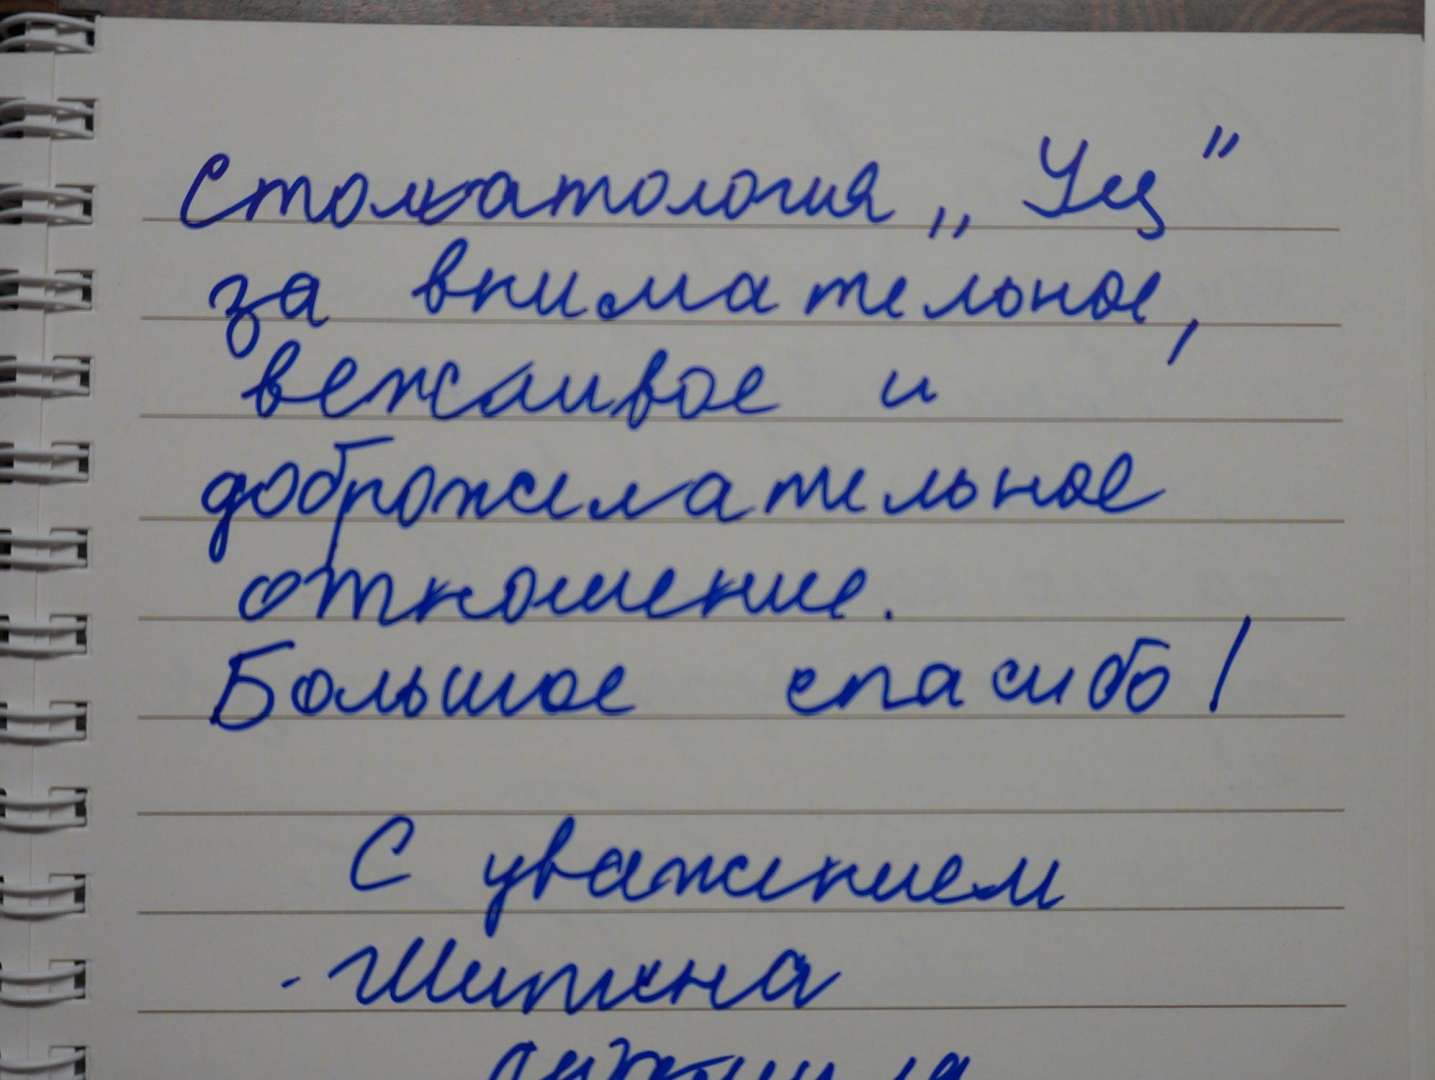 Стоматология „Уц"
за внимательное,
вежливое и
доброжелательное
отношение.
Большое спасибо!
С уважением